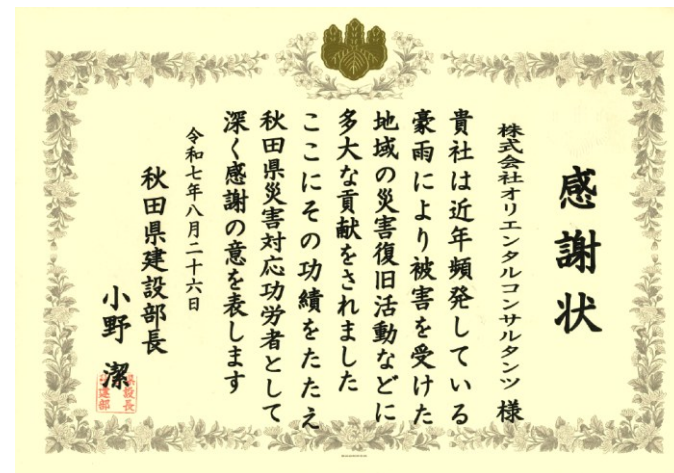 感謝状
株式会社オリエンタルコンサルタンツ 様
貴社は近年頻発している
豪雨により被害を受けた
地域の災害復旧活動などに
多大な貢献をされました
ここにその功績をたたえ
秋田県災害対応功労者として
深く感謝の意を表します
令和七年八月二十六日
秋田県建設部長
小野 潔